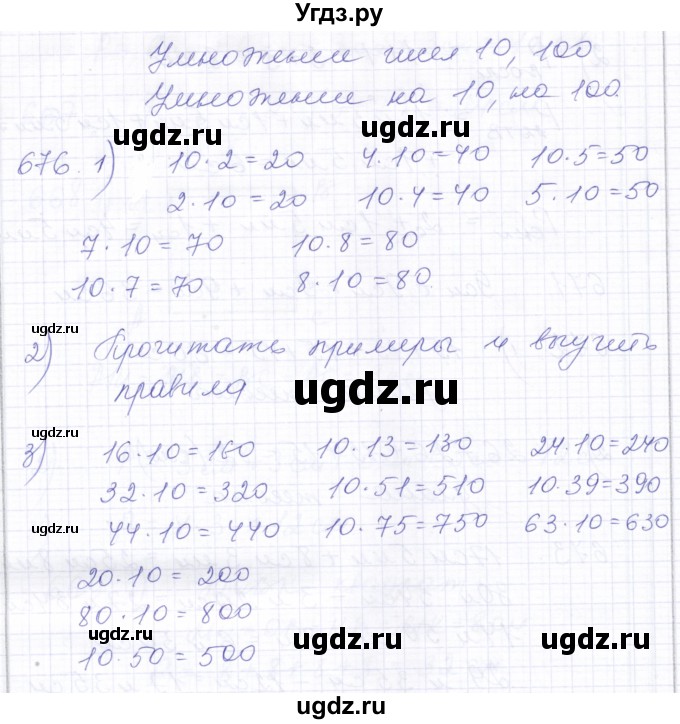 Угдз.ру
Умножении чисел 10, 100
Умножении на 10, на 100.
ugdz.ru ugdz.ru
676. 1) 10·2=20 4·10=40 10·5=50
2·10=20 10·4=40 5·10=50
7·10=70 10·8=80
10·7=70 8·10=80
ugdz.ru
2) Прочитать примеры и выучить
правила
ugdz.ru
ugdz.ru
3) 16·10=160 10·13=130 24·10=240
32·10=320 10·51=510 10·39=390
ugdz.ru
44·10=440 10·75=750 63·10=630
20·10=200
80·10=800
ugdz.ru ugdz.ru ugdz.ru
10·50=500